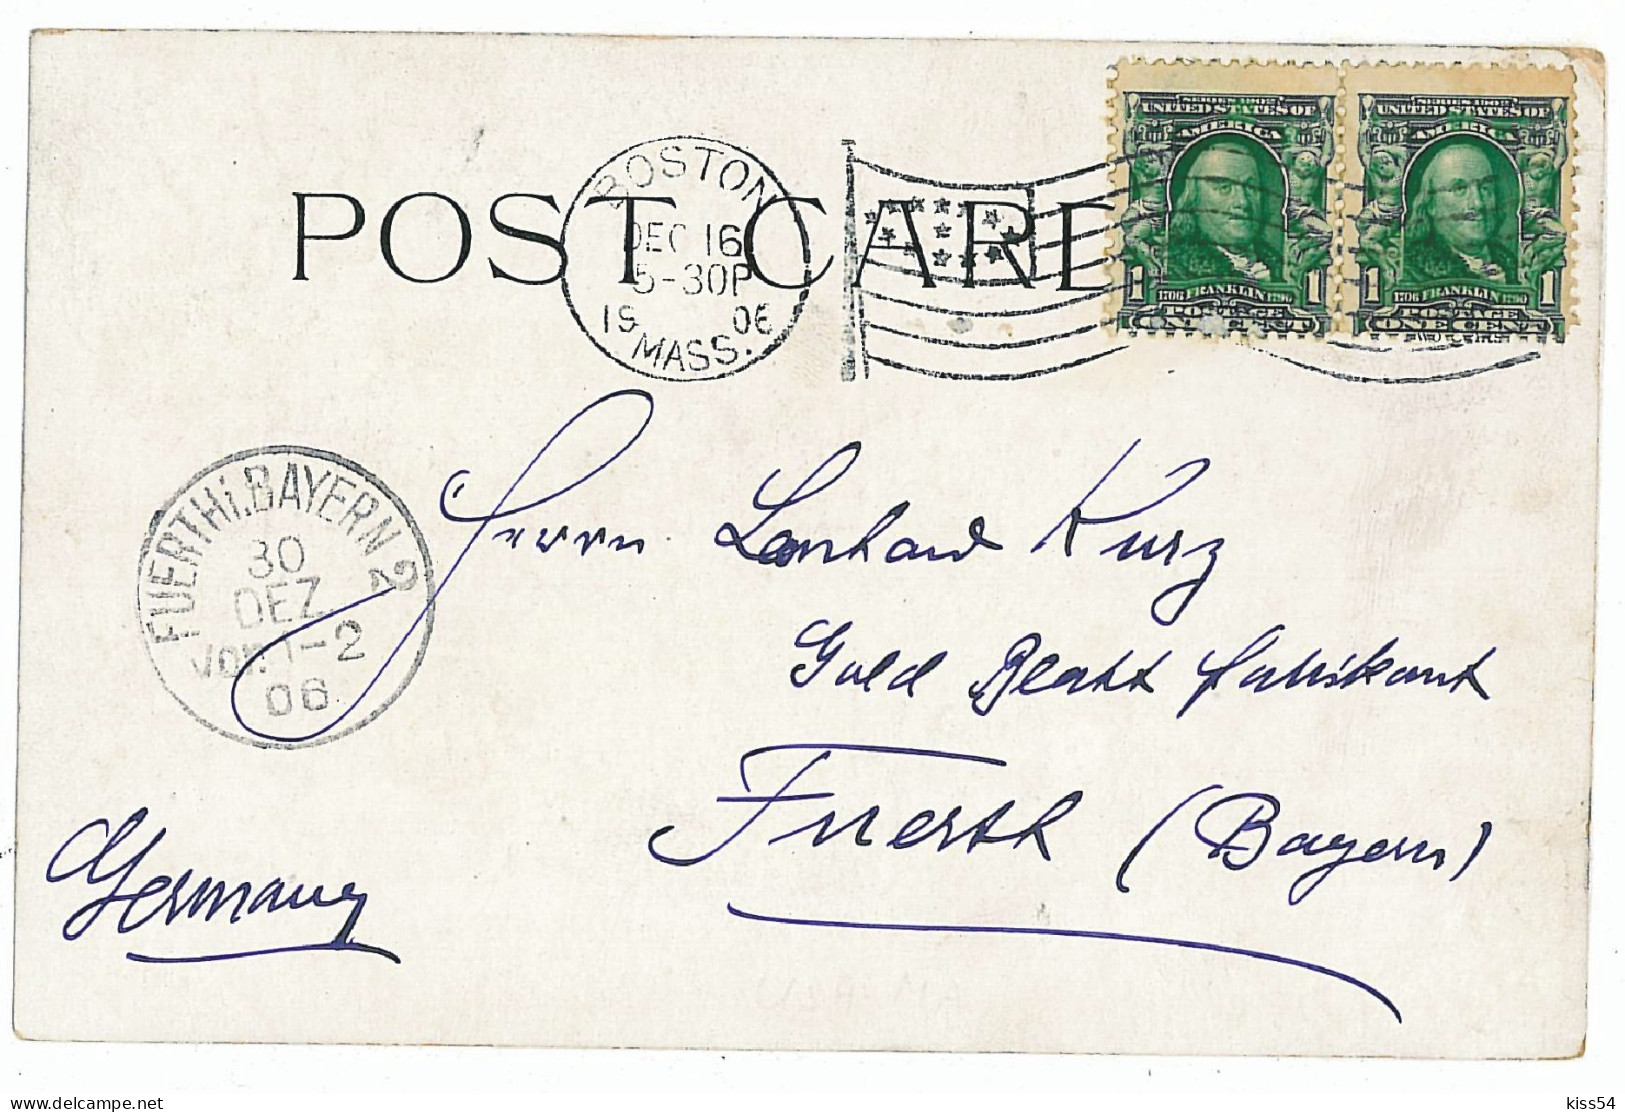 POST CARD
BOSTON
DEC 16
5-30P
19 06
MASS.
SERIES 1902
UNITED STATES OF
AMERICA
1 1
1706 FRANKLIN 1790
POSTAGE
ONE CENT
SERIES 1902
UNITED STATES OF
AMERICA
1 1
1706 FRANKLIN 1790
POSTAGE
ONE CENT
FUERTH i. BAYERN 2
30
DEZ
VOR. 1-2
06
Herrn Leonhard Kurz
Gold Blatt fabrikant
Fuerth (Bayern)
Germany
delcampe.net
kiss54